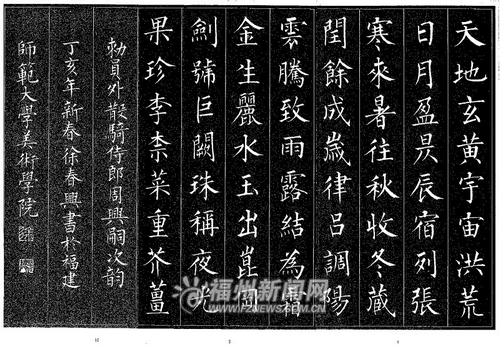 天地玄黃宇宙洪荒
日月盈昃辰宿列張
寒來暑往秋收冬藏
閏餘成歲律呂調陽
雲騰致雨露結為霜
金生麗水玉出崑岡
劍號巨闕珠稱夜光
果珍李柰菜重芥薑
勅員外散騎侍郎周興嗣次韵
丁亥年新春徐春興書於福建
師範大學美術學院
福州新闻网